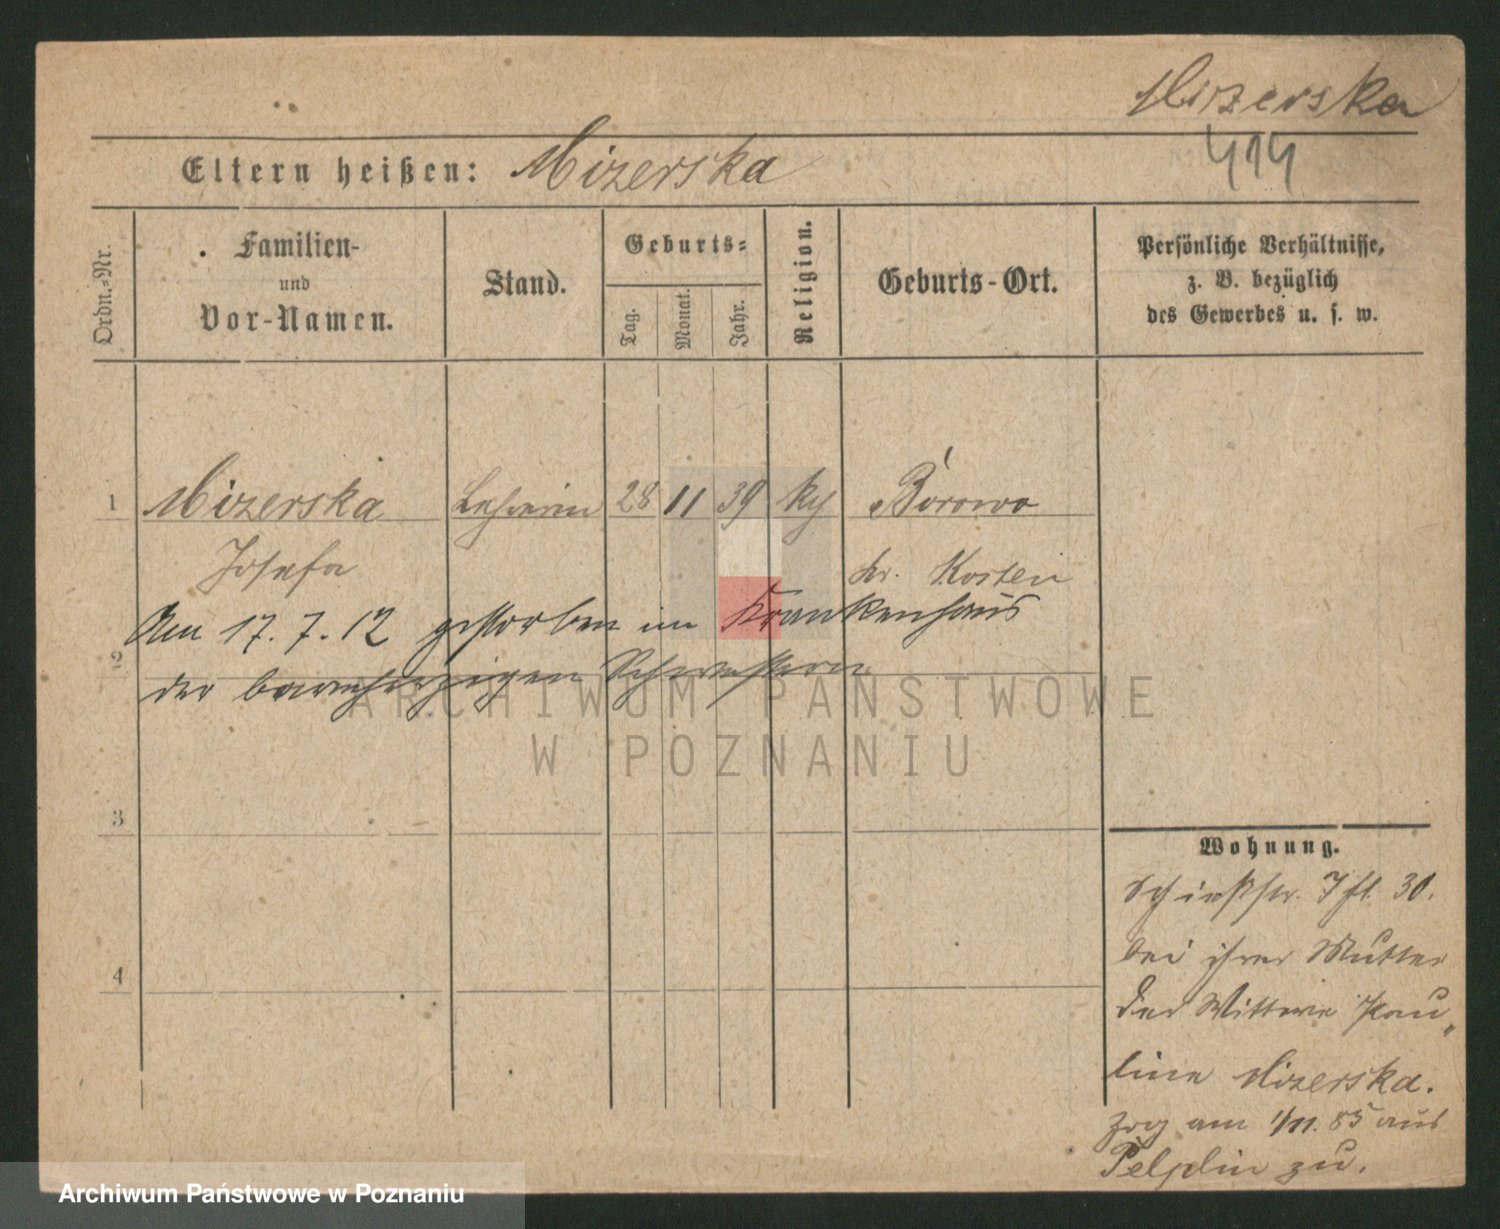 Mizerska
414
Eltern heißen: Mizerska
Ordn.-Nr.
Familien-
und
Vor-Namen.
Stand.
Geburts-
Tag.
Monat.
Jahr.
Religion.
Geburts-Ort.
Persönliche Verhältnisse,
z. B. bezüglich
des Gewerbes u. s. w.
1 Mizerska Lehrerin 28 11 39 kth Borowo
Josefa Kr. Kosten
Am 17.7.12 gestorben im Krankenhaus
2
der barmherzigen Schwestern
3
4
Wohnung.
Schießstr. 7 30.
bei ihrer Mutter
der Wittwe Pau„
line Mizerska.
zog am 1/11. 85 aus
Pelplin zu.
ARCHIWUM PAŃSTWOWE
W POZNANIU
Archiwum Państwowe w Poznaniu